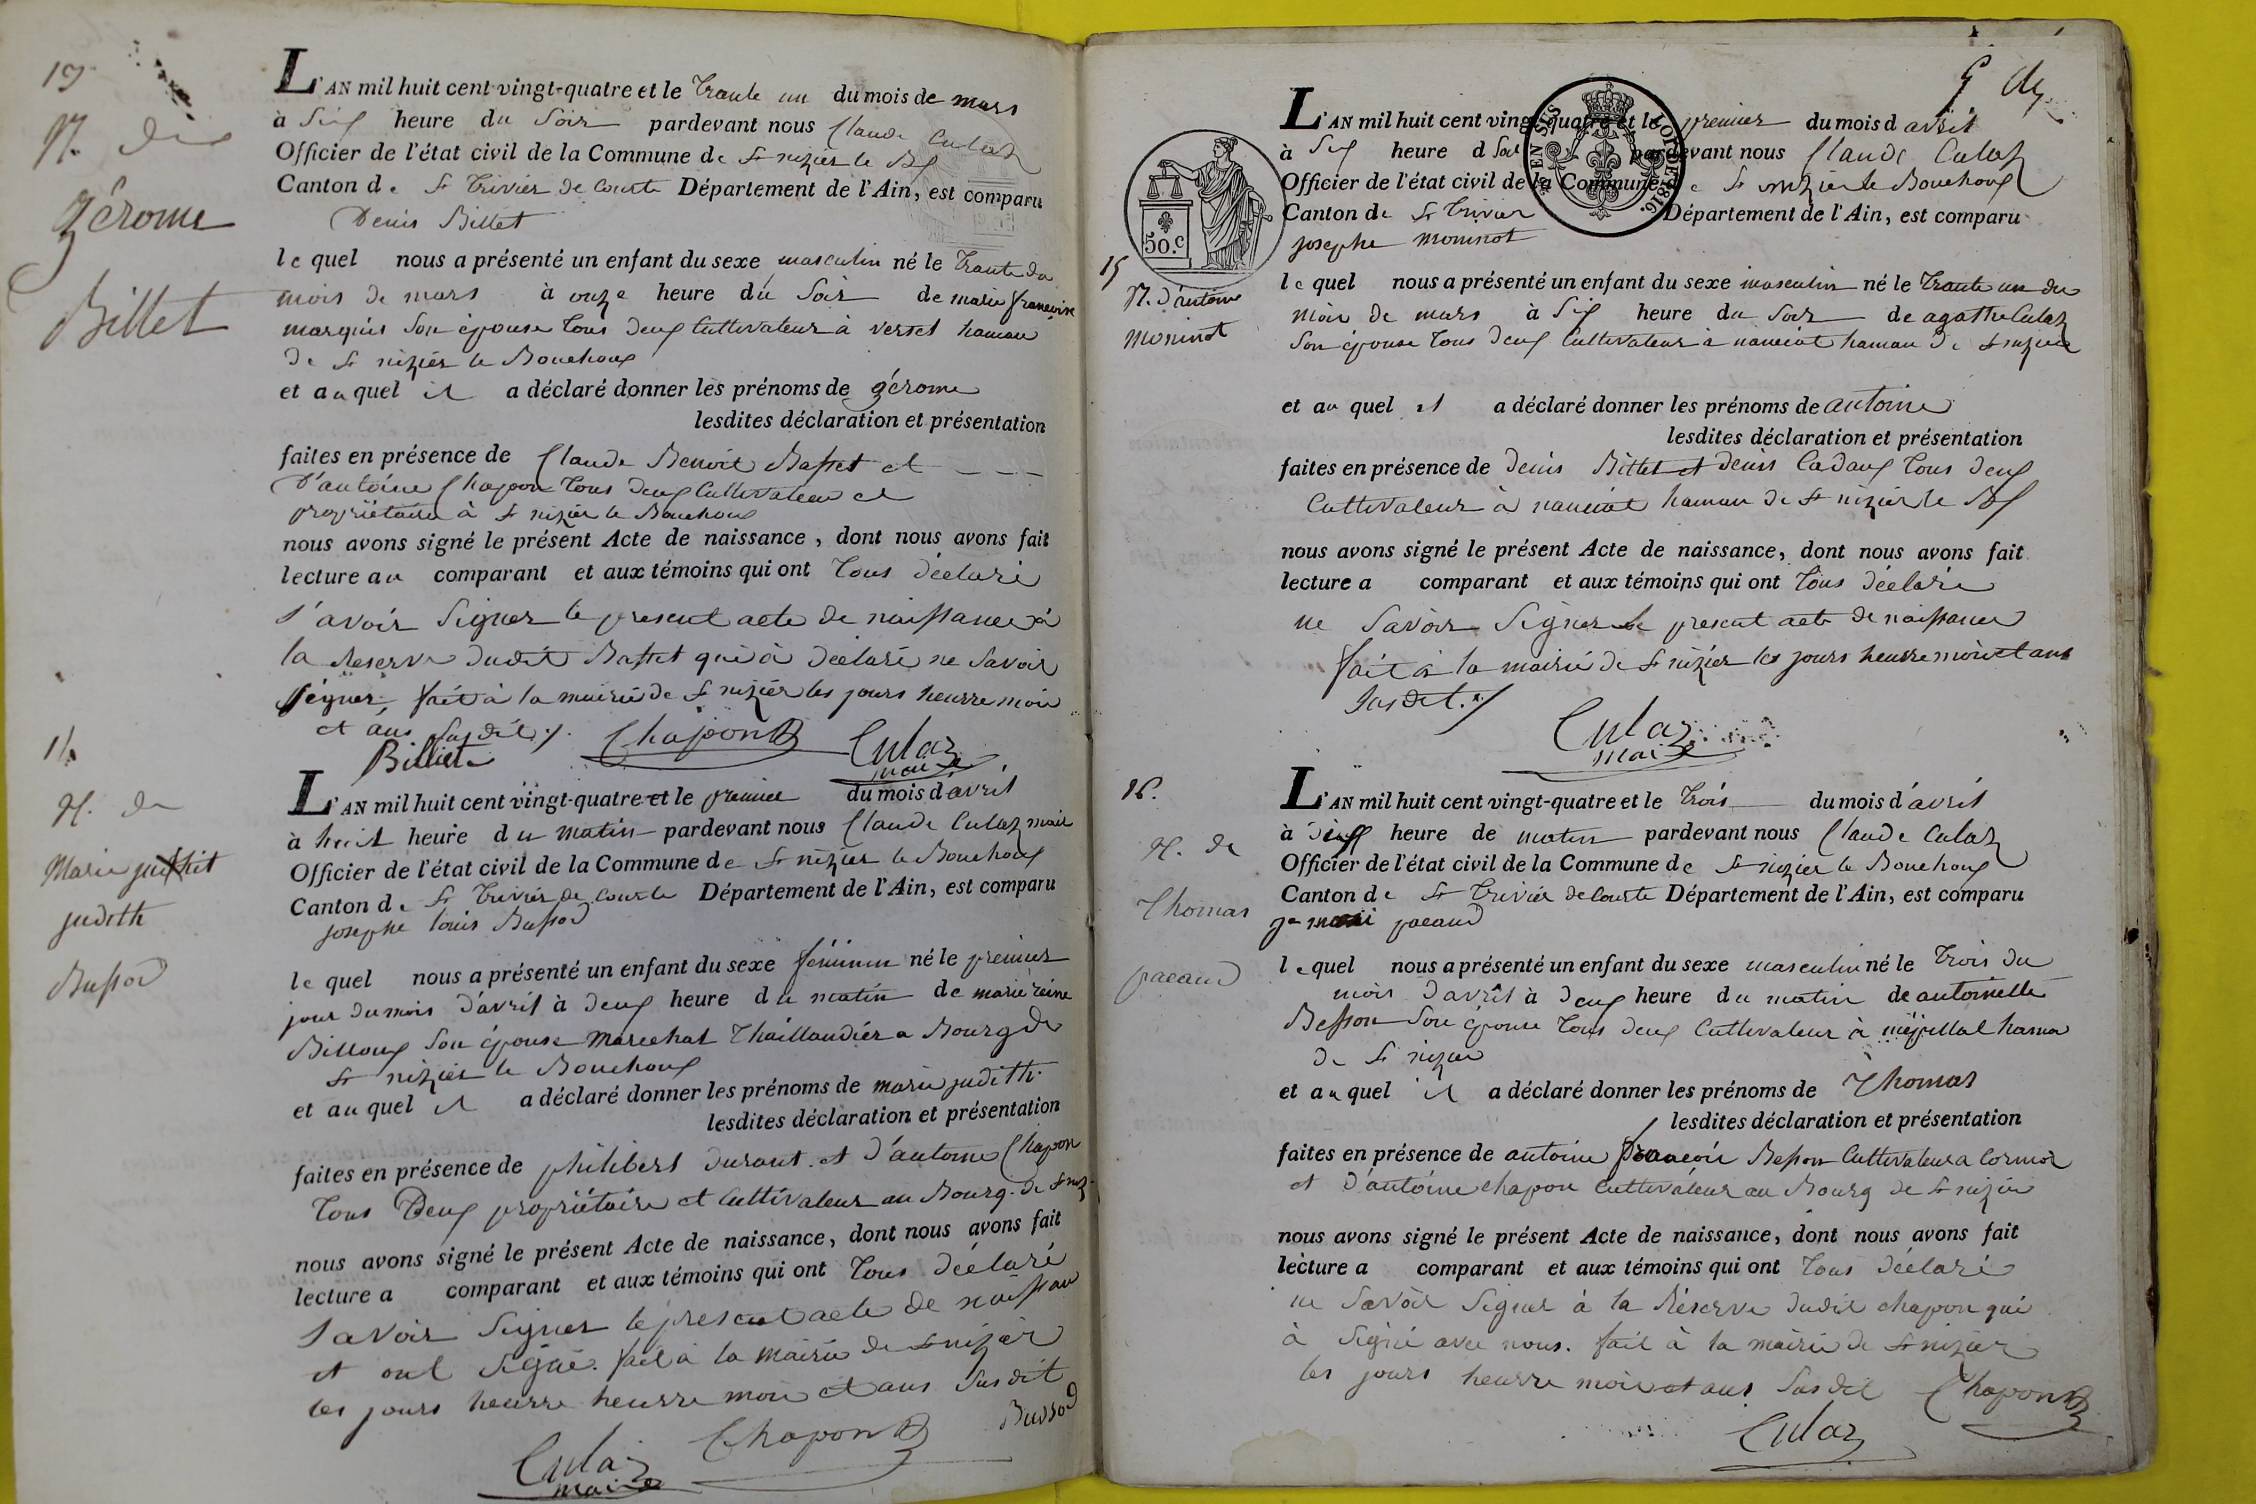 13
N. de
gérome
Billet
L'AN mil huit cent vingt-quatre et le trante un du mois de mars
à Six heure du Soir pardevant nous Claude Culaz
Officier de l'état civil de la Commune de St nizier le Bx
Canton de St trivier de Courte Département de l'Ain, est comparu
Denis Billet
le quel nous a présenté un enfant du sexe masculin né le trante du
mois de mars à onze heure du Soir de marie françoise
marquis Son épouse tous deux Cultivateur à verset hamau
de St nizier le Bouchoux
et au quel il a déclaré donner les prénoms de gérome
lesdites déclaration et présentation
faites en présence de Claude Benoit Basset et
D'antoine Chapon tous deux Cultivateur et
propriëtaire à St nizier le Bouchoux
nous avons signé le présent Acte de naissance, dont nous avons fait
lecture au comparant et aux témoins qui ont tous déclaré
s'avoir Signer le present acte de naissance à
la Reserve dudit Basset qui à déclaré ne Savoir
signer fait à la mairie de St nizier les jours heurre mois
et ans Susdit ./.
Billiet Chapon Culaz
maire
14
N. de
Marie
judith
Bussod
L'AN mil huit cent vingt-quatre et le premier du mois d'avril
à huit heure du matin pardevant nous Claude Culaz mair
Officier de l'état civil de la Commune de St nizier le Bouchoux
Canton de St trivier de Courte Département de l'Ain, est comparu
josephe louis Bussod
le quel nous a présenté un enfant du sexe féminin né le premier
jour du mois d'avril à deux heure du matin de marie reine
Billoux Son épouse marechal thaillandiér a Bourg de
St nizier le Bouchoux
et au quel il a déclaré donner les prénoms de marie judith
lesdites déclaration et présentation
faites en présence de philibert durant et d'antoine Chapon
tous Deux propriétaire et Cultivateur au Bourg de St niz
nous avons signé le présent Acte de naissance, dont nous avons fait
lecture a comparant et aux témoins qui ont tous déclaré
savoir Signer le present acte de naissan
et ont Signé. fait à la mairie de St nizier
les jours heurre heurre mois et ans Susdit
Bussod
Culaz Chapon
maire
L'AN mil huit cent vingt-quatre et le premier du mois d avril
à Six heure d Soir pardevant nous Claude Culaz
Officier de l'état civil de la Commune de St nizier le Bouchoux
Canton de St trivier Département de l'Ain, est comparu
josephe moninot
TIMB
50.c
LOI DE 1816.
15
N. d'antoine
moninot
le quel nous a présenté un enfant du sexe masculin né le trante un du
mois de mars à Six heure du Soir de agathe Culaz
Son épouse tous deux Cultivateur à nanciat hamau de St nizier
et au quel il a déclaré donner les prénoms de antoine
lesdites déclaration et présentation
faites en présence de denis Billet et denis Cadoux tous deux
Cultivateur à nanciat hamau de St nizier le Bx
nous avons signé le présent Acte de naissance, dont nous avons fait
lecture a comparant et aux témoins qui ont tous déclaré
ne Savoir Signer le present acte de naissance
fait à la mairie de St nizier les jours heurre mois et ans
Susdit ./
Culaz
maire
16.
N. de
Thomas
pacaud
L'AN mil huit cent vingt-quatre et le trois du mois d'avril
à heure de matin pardevant nous Claude Culaz
Officier de l'état civil de la Commune de St nizier le Bouchoux
Canton de St trivier de Courte Département de l'Ain, est comparu
pacaud
le quel nous a présenté un enfant du sexe masculin né le trois du
mois d'avril à deux heure du matin de antoinette
Besson Son épouse tous deux Cultivateur à hama
de St nizier
et au quel il a déclaré donner les prénoms de Thomas
lesdites déclaration et présentation
faites en présence de antoine françois Besson Cultivateur a Cormoz
et d'antoine chapon Cultivateur au Bourg de St nizier
nous avons signé le présent Acte de naissance, dont nous avons fait
lècture a comparant et aux témoins qui ont tous déclaré
ne Savoir Signer à la Réserve dudit chapon qui
à Signé avec nous. fait à la mairie de St nizier
les jours heurre mois et ans Susdit Chapon
Culaz